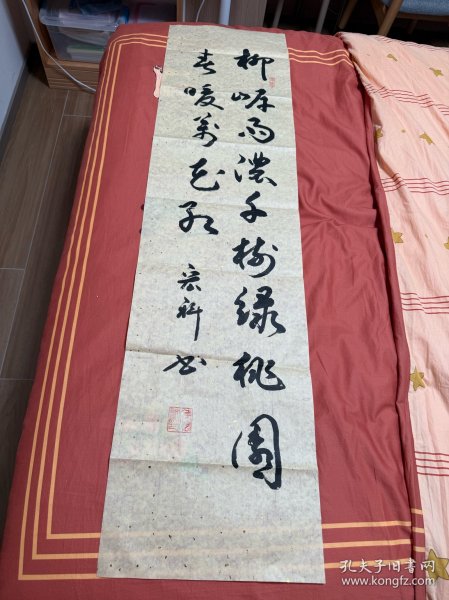 柳岸雨浓千树绿桃园
春暖万花红 宏科书
孔夫子旧书网
www.kongfz.com